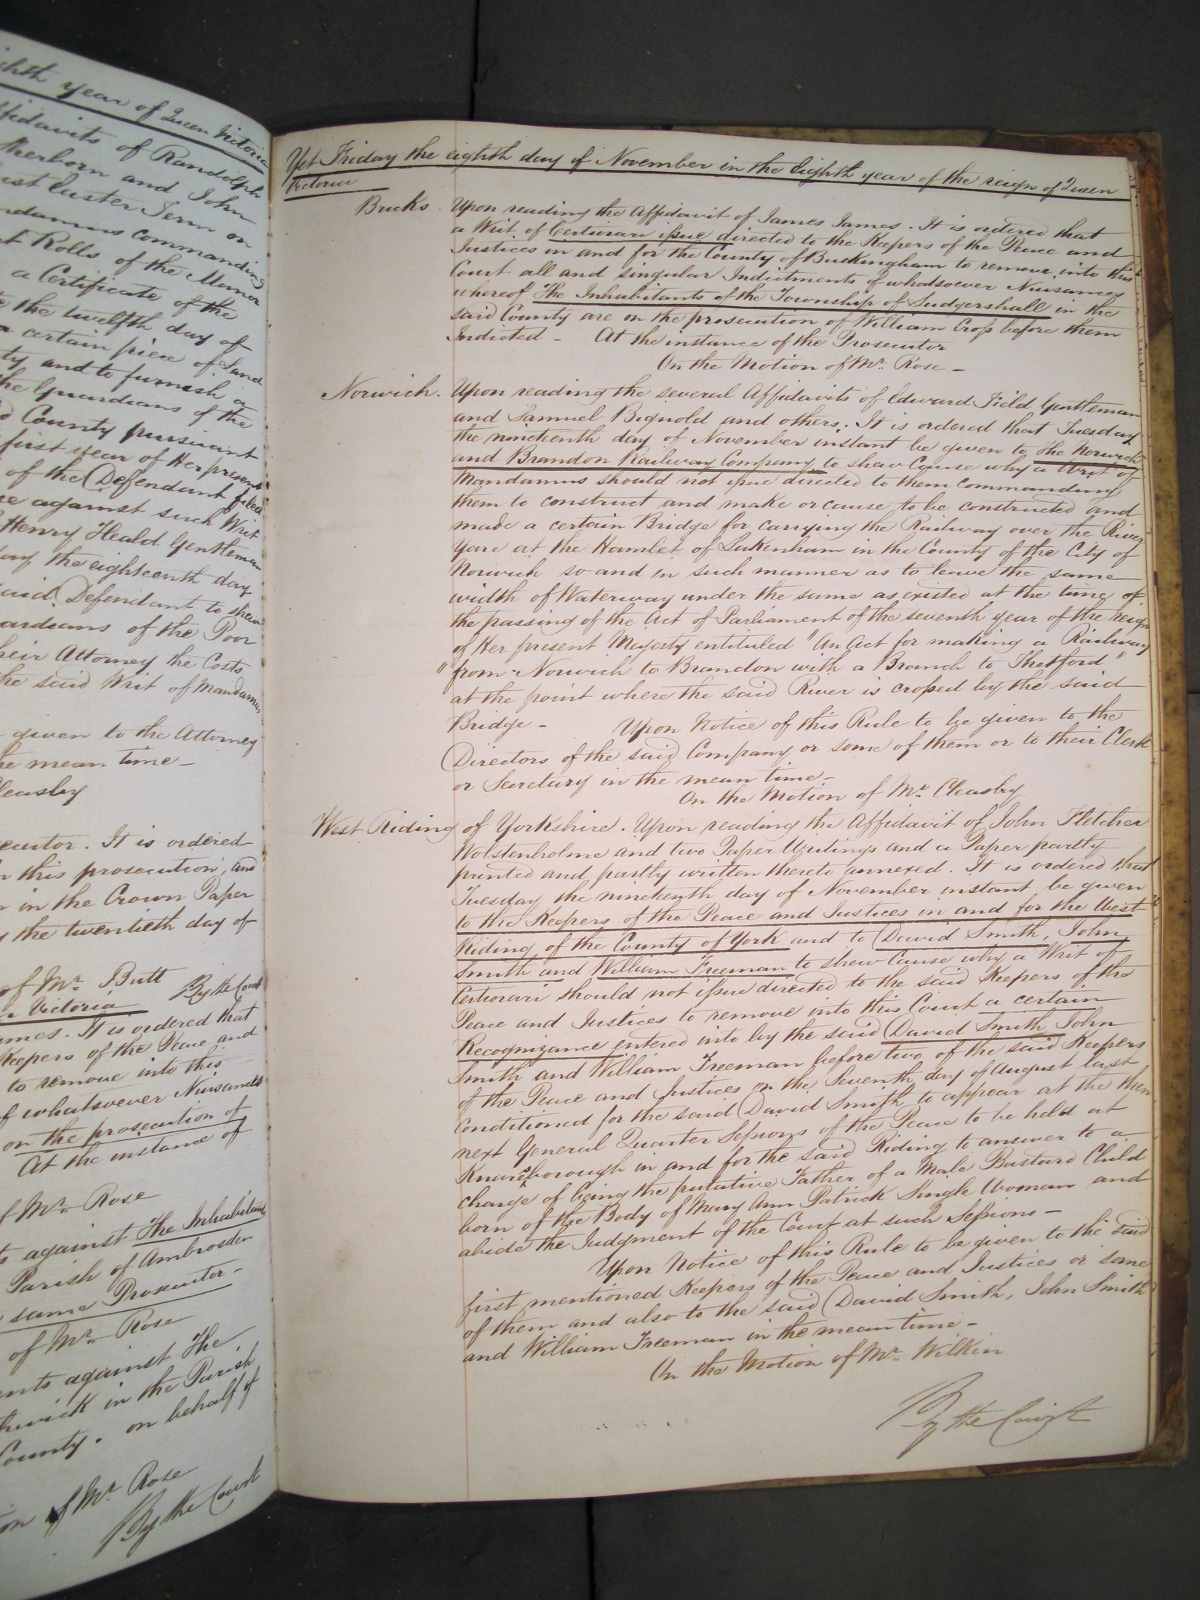 ighth year of Queen Victoria
ffidavits of Randolph
herborn and John
ust Easter Term on
ndamus commanding
t Rolls of the Manor
a Certificate of the
the twelfth day of
certain piece of Land
ty and to furnish a
he Guardians of the
County pursuant
first year of Her present
of the Defendant filed
e against such Writ
Henry Heald Gentleman
day the eighteenth day
said Defendant to shew
ardians of the Poor
heir Attorney the Costs
he said Writ of Mandamus
given to the Attorney
he mean time
leasby
ecutor. It is ordered
n this prosecution, and
r in the Crown Paper
y the twentieth day of
of Mr. Butt
By the Court
Victoria
ames. It is ordered that
Keepers of the Peace and
to remove into this
f whatsoever Nuisances
on the prosecution of
At the instance of
f Mr. Rose
s against The Inhabitants
Parish of Ambrosden
same Prosecutor
of Mr. Rose
ents against The
thwick in the Parish
County. on behalf of
on of Mr. Rose
By the Court
Yet Friday the eighth day of November in the Eighth year of the reign of Queen
Victoria
Bucks. Upon reading the Affidavit of James James. It is ordered that
a Writ of Certiorari issue directed to the Keepers of the Peace and
Justices in and for the County of Buckingham to remove into this
Court all and singular Indictments of whatsoever Nuisances
whereof The Inhabitants of the Township of Ludgershall in the
said County are on the prosecution of William Cross before them
Indicted - At the instance of the Prosecutor
On the Motion of Mr. Rose -
Norwich. Upon reading the several Affidavits of Edward Field Gentleman
and Samuel Bignold and others. It is ordered that Tuesday
the nineteenth day of November instant be given to The Norwich
and Brandon Railway Company to shew Cause why a Writ of
Mandamus should not issue directed to them commanding
them to construct and make or cause to be constructed and
made a certain Bridge for carrying the Railway over the River
Yare at the Hamlet of Lakenham in the County of the City of
Norwich so and in such manner as to leave the same
width of Waterway under the same as existed at the time of
the passing of the Act of Parliament of the seventh year of the reign
of Her present Majesty entituled "An Act for making a Railway
"from Norwich to Brandon with a Branch to Thetford"
at the point where the said River is crossed by the said
Bridge - Upon Notice of this Rule to be given to the
Directors of the said Company or some of them or to their Clerk
or Secretary in the mean time -
On the Motion of Mr. Cleasby
West Riding of Yorkshire. Upon reading the Affidavit of John Fletcher
Wolstenholme and two Paper Writings and a Paper partly
printed and partly written thereto annexed. It is ordered that
Tuesday the nineteenth day of November instant be given
to the Keepers of the Peace and Justices in and for the West
Riding of the County of York and to David Smith, John
Smith and William Freeman to shew Cause why a Writ of
Certiorari should not issue directed to the said Keepers of the
Peace and Justices to remove into this Court a certain
Recognizance entered into by the said David Smith John
Smith and William Freeman before two of the said Keepers
of the Peace and Justices on the Seventh day of August last
conditioned for the said David Smith to appear at the then
next General Quarter Sessions of the Peace to be held at
Knaresborough in and for the said Riding to answer to a
charge of being the putative Father of a Male Bastard Child
born of the Body of Mary Ann Patrick Single Woman and
abide the Judgment of the Court at such Sessions -
Upon Notice of this Rule to be given to the said
first mentioned Keepers of the Peace and Justices or some
of them and also to the said David Smith, John Smith
and William Freeman in the mean time -
On the Motion of Mr. Wilkin
By the Court